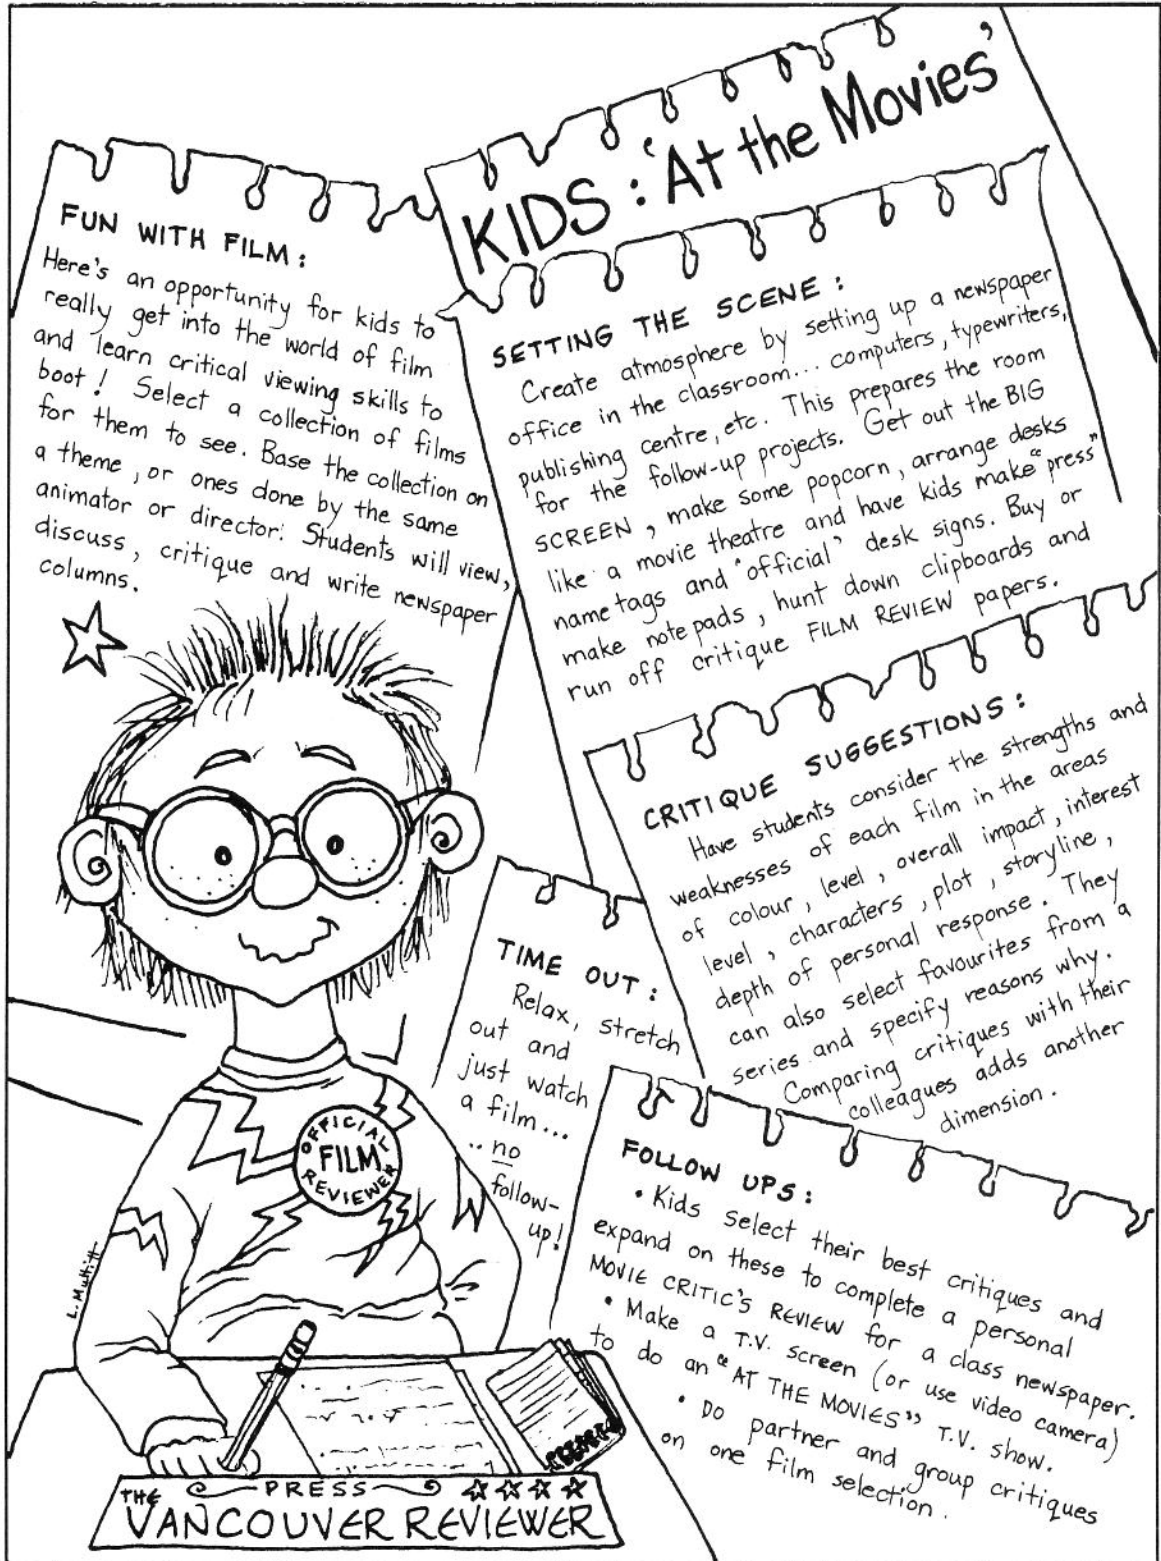 KIDS : 'At the Movies'
FUN WITH FILM :
Here's an opportunity for kids to
really get into the world of film
and learn critical viewing skills to
boot ! Select a collection of films
for them to see. Base the collection on
a theme, or ones done by the same
animator or director! Students will view,
discuss, critique and write newspaper
columns.
SETTING THE SCENE :
Create atmosphere by setting up a newspaper
office in the classroom... computers, typewriters,
publishing centre, etc. This prepares the room
for the follow-up projects. Get out the BIG
SCREEN, make some popcorn, arrange desks
like a movie theatre and have kids make "press"
name tags and "official" desk signs. Buy or
make note pads, hunt down clipboards and
run off critique FILM REVIEW papers.
CRITIQUE SUGGESTIONS :
Have students consider the strengths and
weaknesses of each film in the areas
of colour, level, overall impact, interest
level, characters, plot, storyline,
depth of personal response. They
can also select favourites from a
series and specify reasons why.
Comparing critiques with their
colleagues adds another
dimension.
TIME OUT :
Relax, stretch
out and
just watch
a film...
.. no
follow-
up!
FOLLOW UPS :
• Kids select their best critiques and
expand on these to complete a personal
MOVIE CRITIC'S REVIEW for a class newspaper.
• Make a T.V. screen (or use video camera)
to do an "AT THE MOVIES" T.V. show.
• Do partner and group critiques
on one film selection.
OFFICIAL
FILM
REVIEWER
PRESS
THE
VANCOUVER REVIEWER